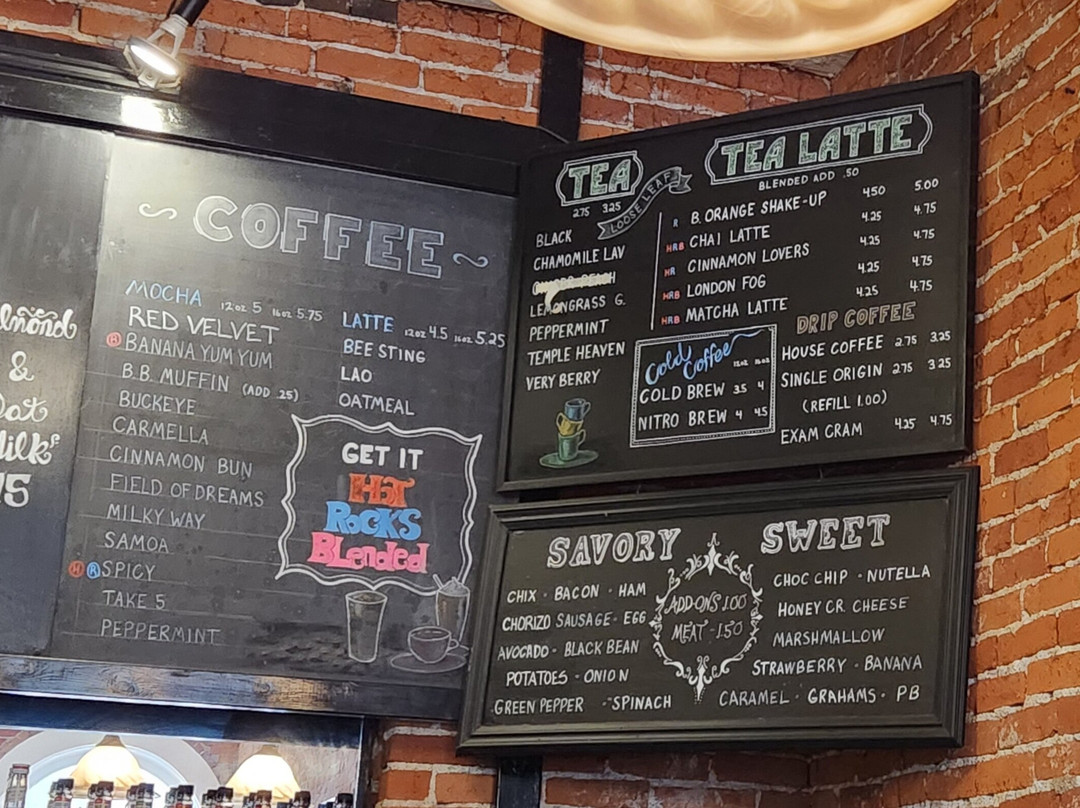 &
15
COFFEE
MOCHA 12oz 5 16oz 5.75
RED VELVET
B BANANA YUM YUM
B.B. MUFFIN (ADD .25)
BUCKEYE
CARMELLA
CINNAMON BUN
FIELD OF DREAMS
MILKY WAY
SAMOA
H R SPICY
TAKE 5
PEPPERMINT
LATTE 12oz 4.5 16oz 5.25
BEE STING
LAO
OATMEAL
GET IT
HOT
ROCKS
BLended
TEA
2.75 3.25
LOOSE LEAF
BLACK
CHAMOMILE LAV
LEMONGRASS G.
PEPPERMINT
TEMPLE HEAVEN
VERY BERRY
TEA LATTE
BLENDED ADD .50
R B. ORANGE SHAKE-UP 4.50 5.00
HRB CHAI LATTE 4.25 4.75
HR CINNAMON LOVERS 4.25 4.75
HRB LONDON FOG 4.25 4.75
HRB MATCHA LATTE 4.25 4.75
Cold Coffee 12oz 16oz
COLD BREW 3.5 4
NITRO BREW 4 4.5
DRIP COFFEE
HOUSE COFFEE 2.75 3.25
SINGLE ORIGIN 2.75 3.25
(REFILL 1.00)
EXAM CRAM 4.25 4.75
SAVORY
CHIX · BACON · HAM
CHORIZO SAUSAGE · EGG
AVOCADO · BLACK BEAN
POTATOES · ONION
GREEN PEPPER · SPINACH
ADD-ONS 1.00
MEAT - 1.50
SWEET
CHOC CHIP · NUTELLA
HONEY CR. CHEESE
MARSHMALLOW
STRAWBERRY · BANANA
CARAMEL · GRAHAMS · PB